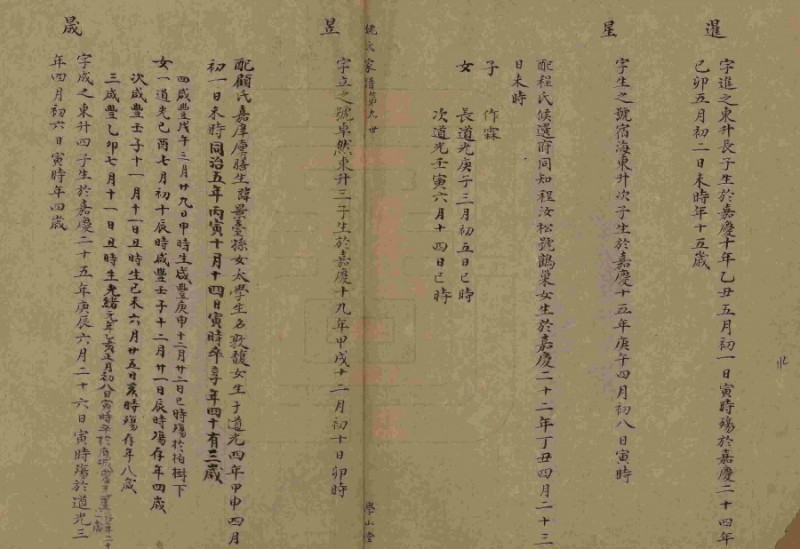 暹
字進之東升長子生於嘉慶十年乙丑五月初一日寅時殤於嘉慶二十四年
己卯五月初二日未時年十五歲
星
字生之號宿海東升次子生於嘉慶十五年庚午四月初八日寅時
配程氏候選府同知程汝松號鶴巢女生於嘉慶二十二年丁丑四月二十三
日未時
子 作霖
女 長道光庚子三月初五日巳時
次道光壬寅六月十四日巳時
姚氏家譜第九世
學山堂
昱
字立之號卓然東升三子生於嘉慶十九年甲戌十二月初十日卯時
配顧氏嘉庠廩膳生諱景臺孫女太學生名敦馥女生于道光四年甲申四月
初一日未時同治五年丙寅十月十四日寅時卒享年四十有三歲
四咸豐戊午三月廿九日申時生咸豐庚申十二月廿二日巳時殤於柏樹下
女一道光己酉七月初十辰時咸豐壬子十二月廿一日辰時殤存年四歲
次咸豐壬子十一月十一日丑時生己未六月廿五日亥時殤存年八歲
三咸豐乙卯七月十一日丑時生光緒元年乙亥正月初八日寅時卒於
晟
字成之東升四子生於嘉慶二十五年庚辰六月二十六日寅時殤於道光三
年四月初六日寅時年四歲